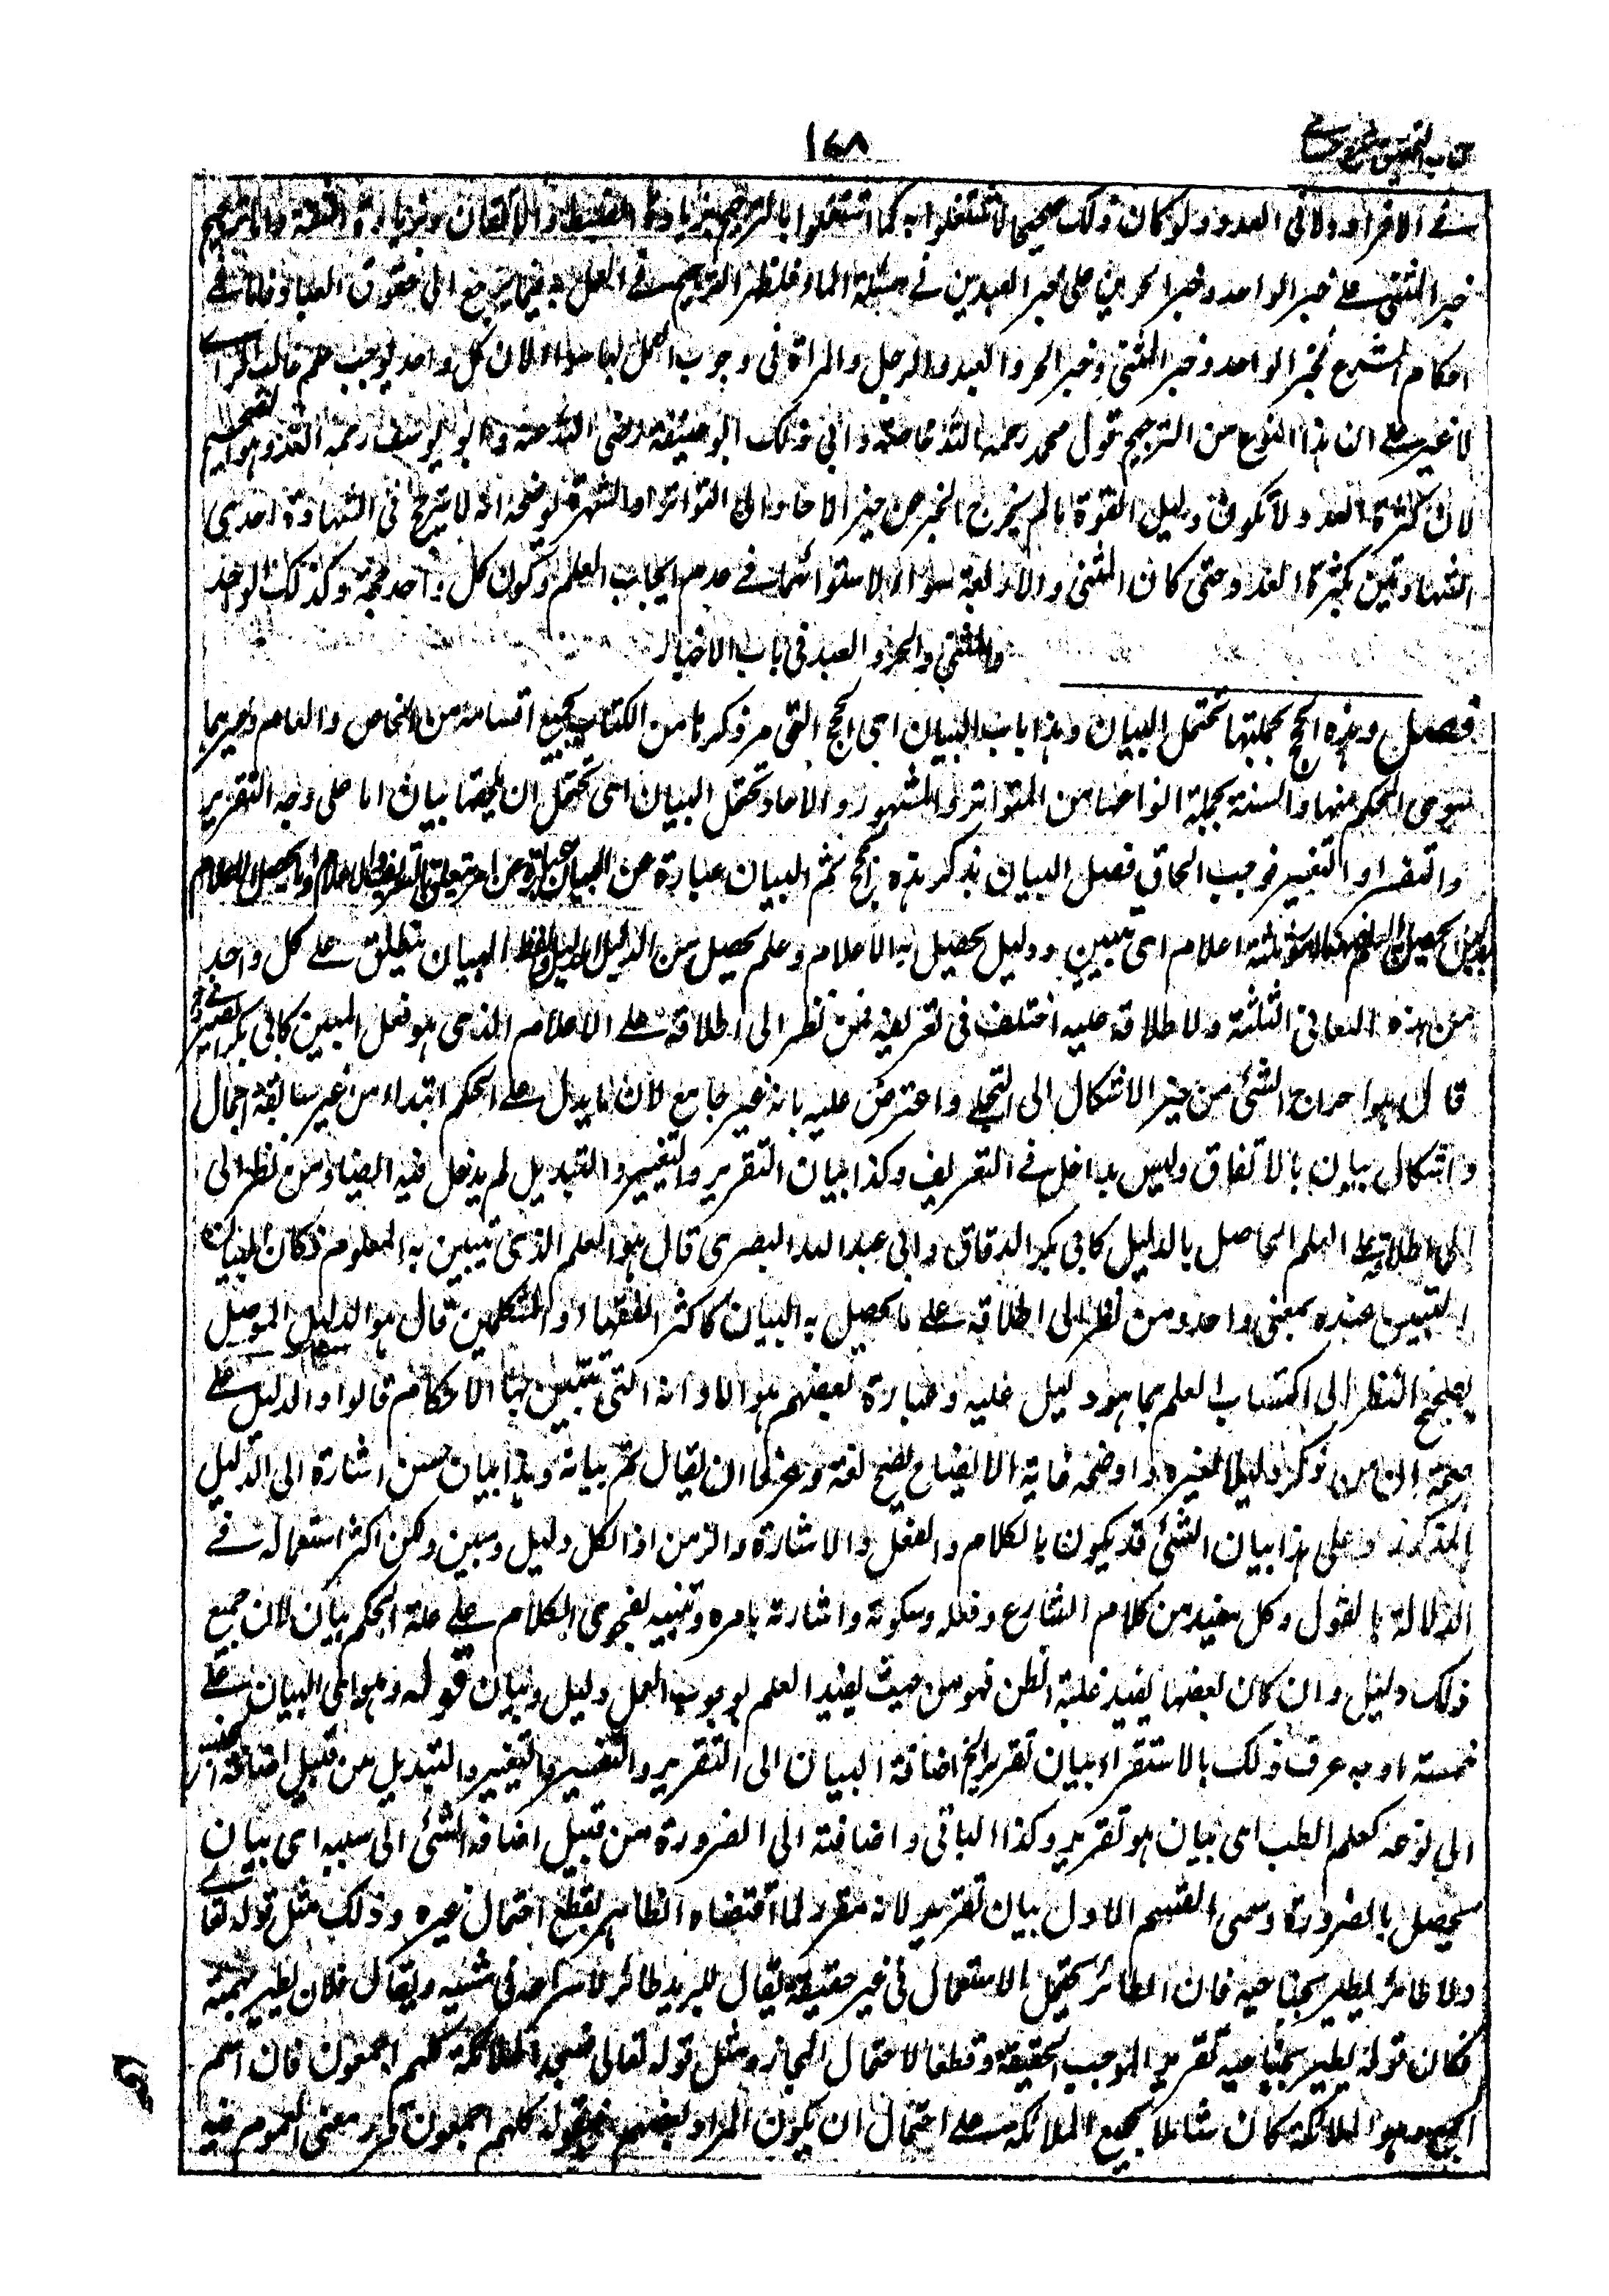 ١٦٨
في الافراد ولا في العدد ولو كان ذلك صحيحا لاشتغلوا به كما اشتغلوا بالترجيح بزيادة الضبط والاتقان وبزيادة الثقة واما ترجيح
خبر المثنى على خبر الواحد وخبر الحرين على خبر العبدين في مسئلة الماء فلظهور الترجيح في العمل به فيما يرجع الى حقوق العباد فاما في
احكام الشرع فخبر الواحد وخبر المثنى وخبر الحر والعبد والرجل والمراة في وجوب العمل بها سواء لان كل واحد يوجب علم غالب الراى
لا غير على ان هذا النوع من الترجيح قول محمد رحمه الله خاصة وابى ذلك ابو حنيفة رضى الله عنه وابو يوسف رحمه الله وهو الصحيح
لان كثرة العدد لا تكون دليل القوة ما لم يخرج الخبر من حيز الاحاد الى التواتر او الشهرة يوضحه انه لا يترجح في الشهادة احدى
الشهادتين بكثرة العدد حتى كان المثنى والاربعة سواء لاستوائهما في عدم ايجاب العلم وكون كل واحد حجة وكذلك الواحد
والمثنى والحر والعبد في باب الاخبار
فصل وهذه الحجج بجملتها تحتمل البيان وهذا باب البيان اى الحجج التي مر ذكرها من الكتاب بجميع اقسامه من الخاص والعام وغيرهما
سوى المحكم منها والسنة بجملة انواعها من المتواتر والمشهور والاحاد تحتمل البيان اى تحتمل ان يلحقها بيان اما على وجه التقرير
والتفسير او التغيير فوجب الحاق فصل البيان بذكر هذه الحجج ثم البيان عبارة عن
ثلثة اعلام اى تبيين ودليل يحصل به الاعلام وعلم يحصل من الدليل ولفظ البيان ينطلق على كل واحد
من هذه المعانى الثلثة ولاطلاقه عليه اختلف في تعريفه فمن نظر الى اطلاقه على الاعلام الذى هو فعل المبين كابى بكر الصيرفى
قال هو اخراج الشئ من حيز الاشكال الى التجلى واعترض عليه بانه غير جامع لان ما يدل على الحكم ابتداء من غير سابقة اجمال
واشكال بيان بالاتفاق وليس بداخل في التعريف وكذا بيان التقرير والتغيير والتبديل لم يدخل فيه ايضا ومن نظر الى
الى اطلاقه على العلم الحاصل بالدليل كابى بكر الدقاق وابى عبد الله البصرى قال هو العلم الذى تبيين به المعلوم فكان البيان و
التبيين عنده بمعنى واحد ومن نظر الى اطلاقه على ما يحصل به البيان كاكثر الفقهاء والمتكلمين قال هو الدليل الموصل
بصحيح النظر الى اكتساب العلم بما هو دليل عليه وعبارة بعضهم هو الادلة التي تتبين بها الاحكام قالوا والدليل على
صحته ان من ذكر دليلا لغيره واوضحه غاية الايضاح يصح لغة وعرفا ان يقال تم بيانه وهذا بيان حسن اشارة الى الدليل
المذكور وعلى هذا بيان الشئ قد يكون بالكلام والفعل والاشارة والرمز اذ الكل دليل ومبين ولكن اكثر استعماله في
الدلالة بالقول وكل مفيد من كلام الشارع وفعله وسكوته واشارته بامره وتنبيه بفحوى الكلام على علة الحكم بيان لان جميع
ذلك دليل وان كان بعضها يفيد غلبة الظن فهو من حيث يفيد العلم بوجوب العمل دليل وبيان قوله وهو اى البيان على
خمسة اوجه عرف ذلك بالاستقراء بيان تقرير الخ اضافة البيان الى التقرير والتفسير والتغيير والتبديل من قبيل اضافة الجنس
الى نوعه كعلم الطب اى بيان هو تقرير وكذا الباقى واضافته الى الضرورة من قبيل اضافة الشئ الى سببه اى بيان
يحصل بالضرورة وسمى القسم الاول بيان تقرير لانه مقرر لما اقتضاه الظاهر بقطع احتمال غيره وذلك مثل قوله تعالى
ولا طائر يطير بجناحيه فان الطائر يحتمل الاستعمال في غير حقيقة يقال للبريد طائر لاسراعه في مشيه ويقال فلان يطير بهمته
فكان قوله يطير بجناحيه تقرير الموجب الحقيقة وقطعا لاحتمال المجاز ومثل قوله تعالى فسجد الملائكة كلهم اجمعون فان اسم
الجمع وهو الملائكة كان شاملا لجميع الملائكة على احتمال ان يكون المراد بعضهم فبقوله كلهم اجمعون قرر معنى العموم فيه